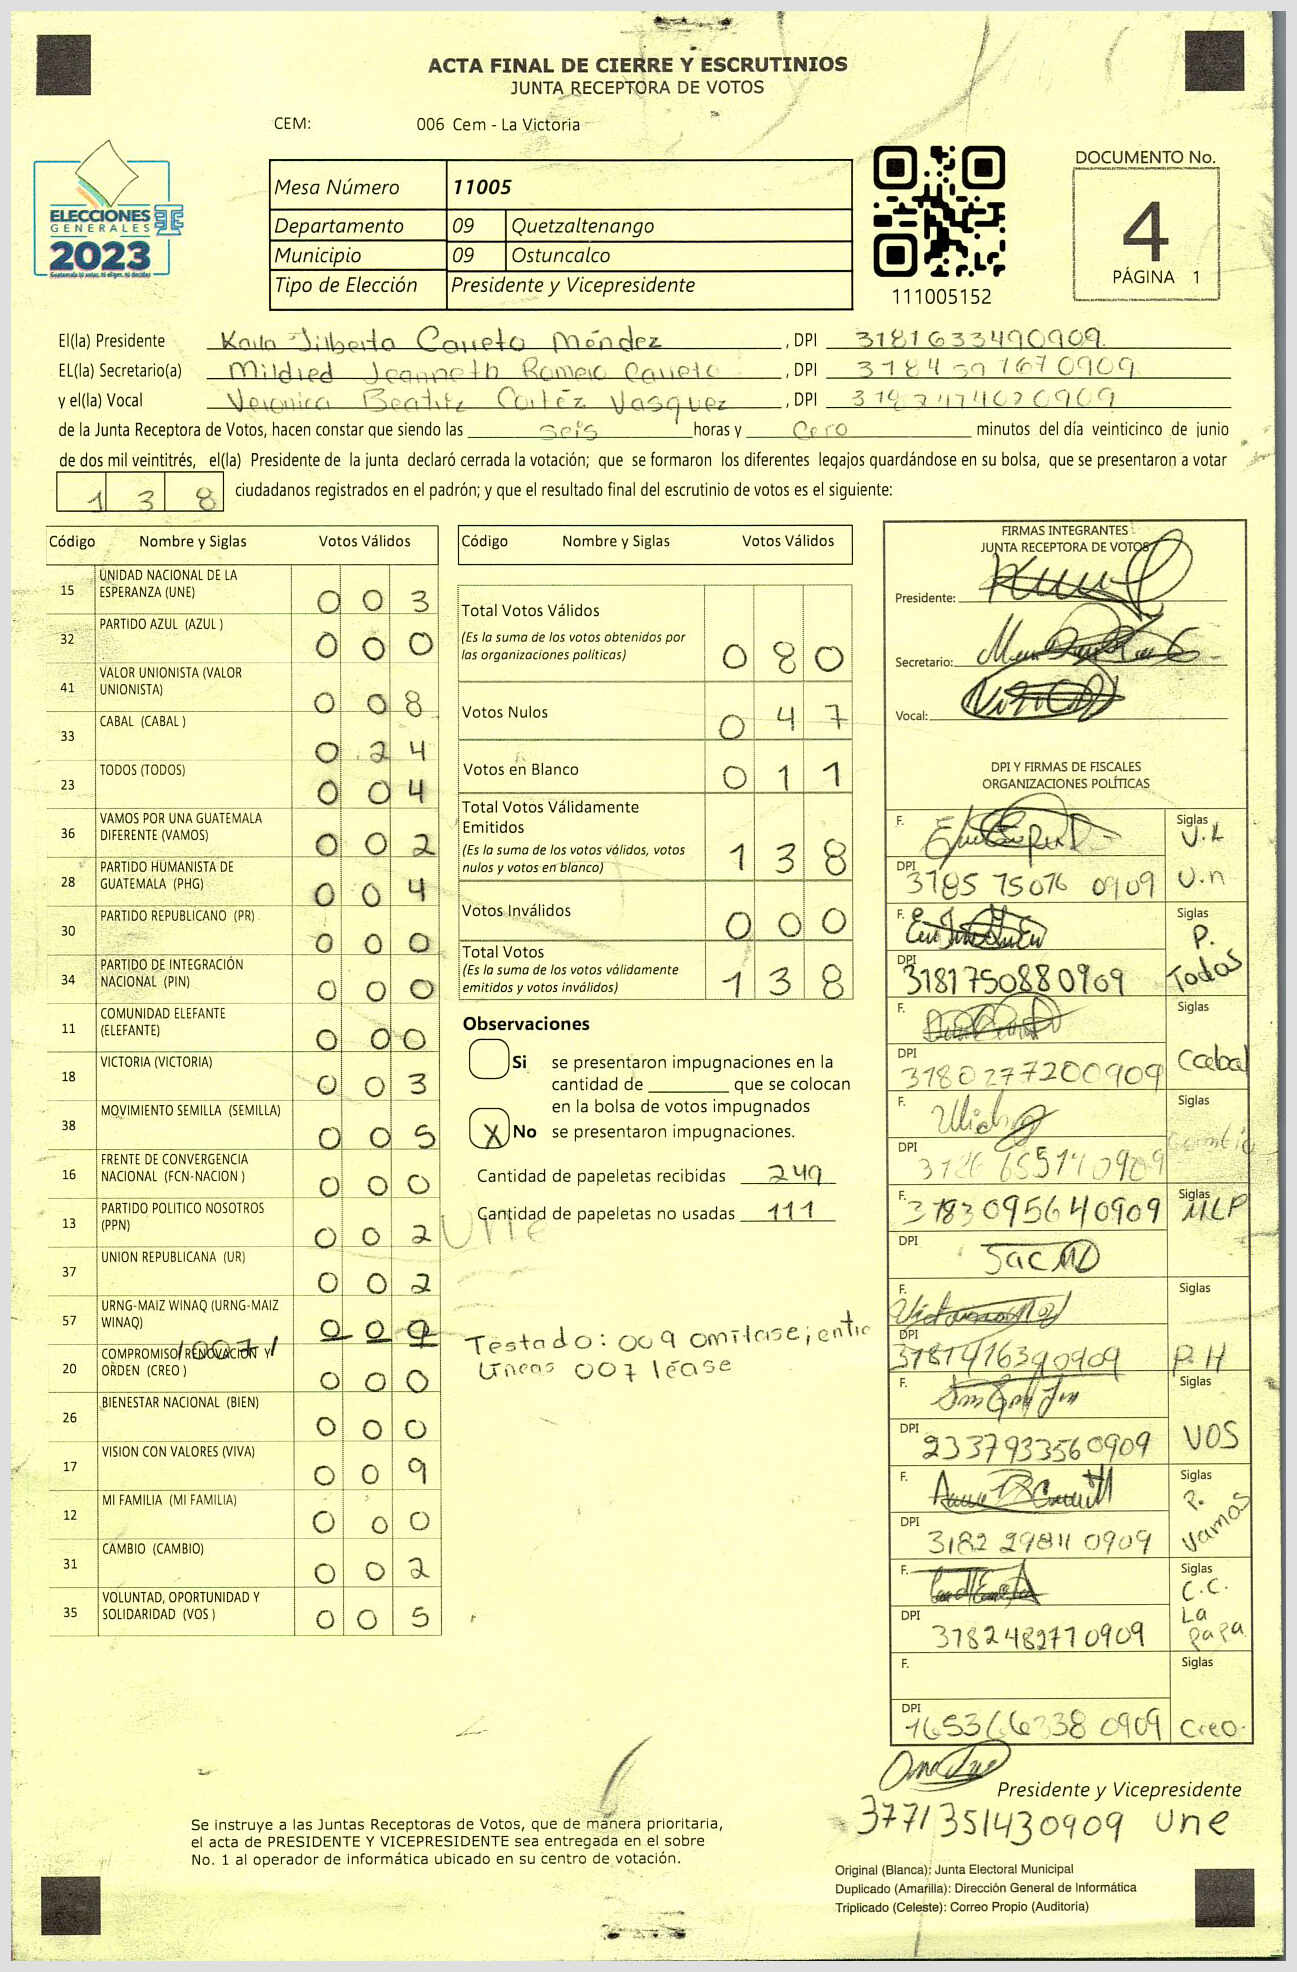 ACTA FINAL DE CIERRE Y ESCRUTINIOS
JUNTA RECEPTORA DE VOTOS
CEM: 006 Cem - La Victoria
ELECCIONES
GENERALES
2023
Mesa Número 11005
Departamento 09 Quetzaltenango
Municipio 09 Ostuncalco
Tipo de Elección Presidente y Vicepresidente
111005152
DOCUMENTO No.
4
PÁGINA 1
El(la) Presidente Karla Jilberta Méndez, DPI 3181633490909
EL(la) Secretario(a) Mildred Jeanneth Romero, DPI
y el(la) Vocal Veronica Beatriz Cortéz Vasquez, DPI
de la Junta Receptora de Votos, hacen constar que siendo las seis horas y cero minutos del día veinticinco de junio
de dos mil veintitrés, el(la) Presidente de la junta declaró cerrada la votación; que se formaron los diferentes legajos guardándose en su bolsa, que se presentaron a votar
138 ciudadanos registrados en el padrón; y que el resultado final del escrutinio de votos es el siguiente:
Código Nombre y Siglas Votos Válidos
15 UNIDAD NACIONAL DE LA ESPERANZA (UNE) 0 0 3
32 PARTIDO AZUL (AZUL ) 0 0 0
41 VALOR UNIONISTA (VALOR UNIONISTA) 0 0 8
33 CABAL (CABAL ) 0 2 4
23 TODOS (TODOS) 0 0 4
36 VAMOS POR UNA GUATEMALA DIFERENTE (VAMOS) 0 0 2
28 PARTIDO HUMANISTA DE GUATEMALA (PHG) 0 0 4
30 PARTIDO REPUBLICANO (PR) 0 0 0
34 PARTIDO DE INTEGRACIÓN NACIONAL (PIN) 0 0 0
11 COMUNIDAD ELEFANTE (ELEFANTE) 0 0 0
18 VICTORIA (VICTORIA) 0 0 3
38 MOVIMIENTO SEMILLA (SEMILLA) 0 0 5
16 FRENTE DE CONVERGENCIA NACIONAL (FCN-NACION ) 0 0 0
13 PARTIDO POLITICO NOSOTROS (PPN) 0 0 2
37 UNION REPUBLICANA (UR) 0 0 2
57 URNG-MAIZ WINAQ (URNG-MAIZ WINAQ) 0 0 9
/007/
20 COMPROMISO RENOVACION Y ORDEN (CREO ) 0 0 0
26 BIENESTAR NACIONAL (BIEN) 0 0 0
17 VISION CON VALORES (VIVA) 0 0 9
12 MI FAMILIA (MI FAMILIA) 0 0 0
31 CAMBIO (CAMBIO) 0 0 2
35 VOLUNTAD, OPORTUNIDAD Y SOLIDARIDAD (VOS ) 0 0 5
Código Nombre y Siglas Votos Válidos
Total Votos Válidos
(Es la suma de los votos obtenidos por
las organizaciones políticas) 0 8 0
Votos Nulos 0 4 7
Votos en Blanco 0 1 1
Total Votos Válidamente
Emitidos
(Es la suma de los votos válidos, votos
nulos y votos en blanco) 1 3 8
Votos Inválidos 0 0 0
Total Votos
(Es la suma de los votos válidamente
emitidos y votos inválidos) 1 3 8
Observaciones
Si se presentaron impugnaciones en la
cantidad de ________ que se colocan
en la bolsa de votos impugnados
X No se presentaron impugnaciones.
Cantidad de papeletas recibidas 249
Cantidad de papeletas no usadas 111
Une
Testado: 009 omitase; entre
lineas 007 léase
FIRMAS INTEGRANTES
JUNTA RECEPTORA DE VOTOS
Presidente:
Secretario:
Vocal:
DPI Y FIRMAS DE FISCALES
ORGANIZACIONES POLÍTICAS
F. Siglas
DPI 3785 75076 0909 U.n
F. Siglas P. Todos
DPI 3181750880909
F. Siglas Cabal
DPI 3780277200909
F. Siglas
DPI
F. 3783095640909 Siglas MLP
DPI
F. Siglas P.H
DPI
F. Siglas VOS
DPI 2337933560909
F. Siglas P. Vamos
DPI 3182 29811 0909
F. Siglas C.C. La papa
DPI 3782482770909
F. Siglas Creo.
DPI
Presidente y Vicepresidente
3771351430909 une
Se instruye a las Juntas Receptoras de Votos, que de manera prioritaria,
el acta de PRESIDENTE Y VICEPRESIDENTE sea entregada en el sobre
No. 1 al operador de informática ubicado en su centro de votación.
Original (Blanca): Junta Electoral Municipal
Duplicado (Amarilla): Dirección General de Informática
Triplicado (Celeste): Correo Propio (Auditoria)